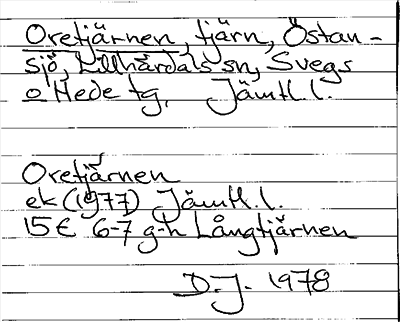 Oretjärnen, tjärn, Östan-
sjö, Lillhärdals sn, Svegs
o Hede tg, Jämtl. l.
Oretjärnen
ek (1977) Jämtl. l.
15E 6-7 g-h Långtjärnen
D.J. 1978